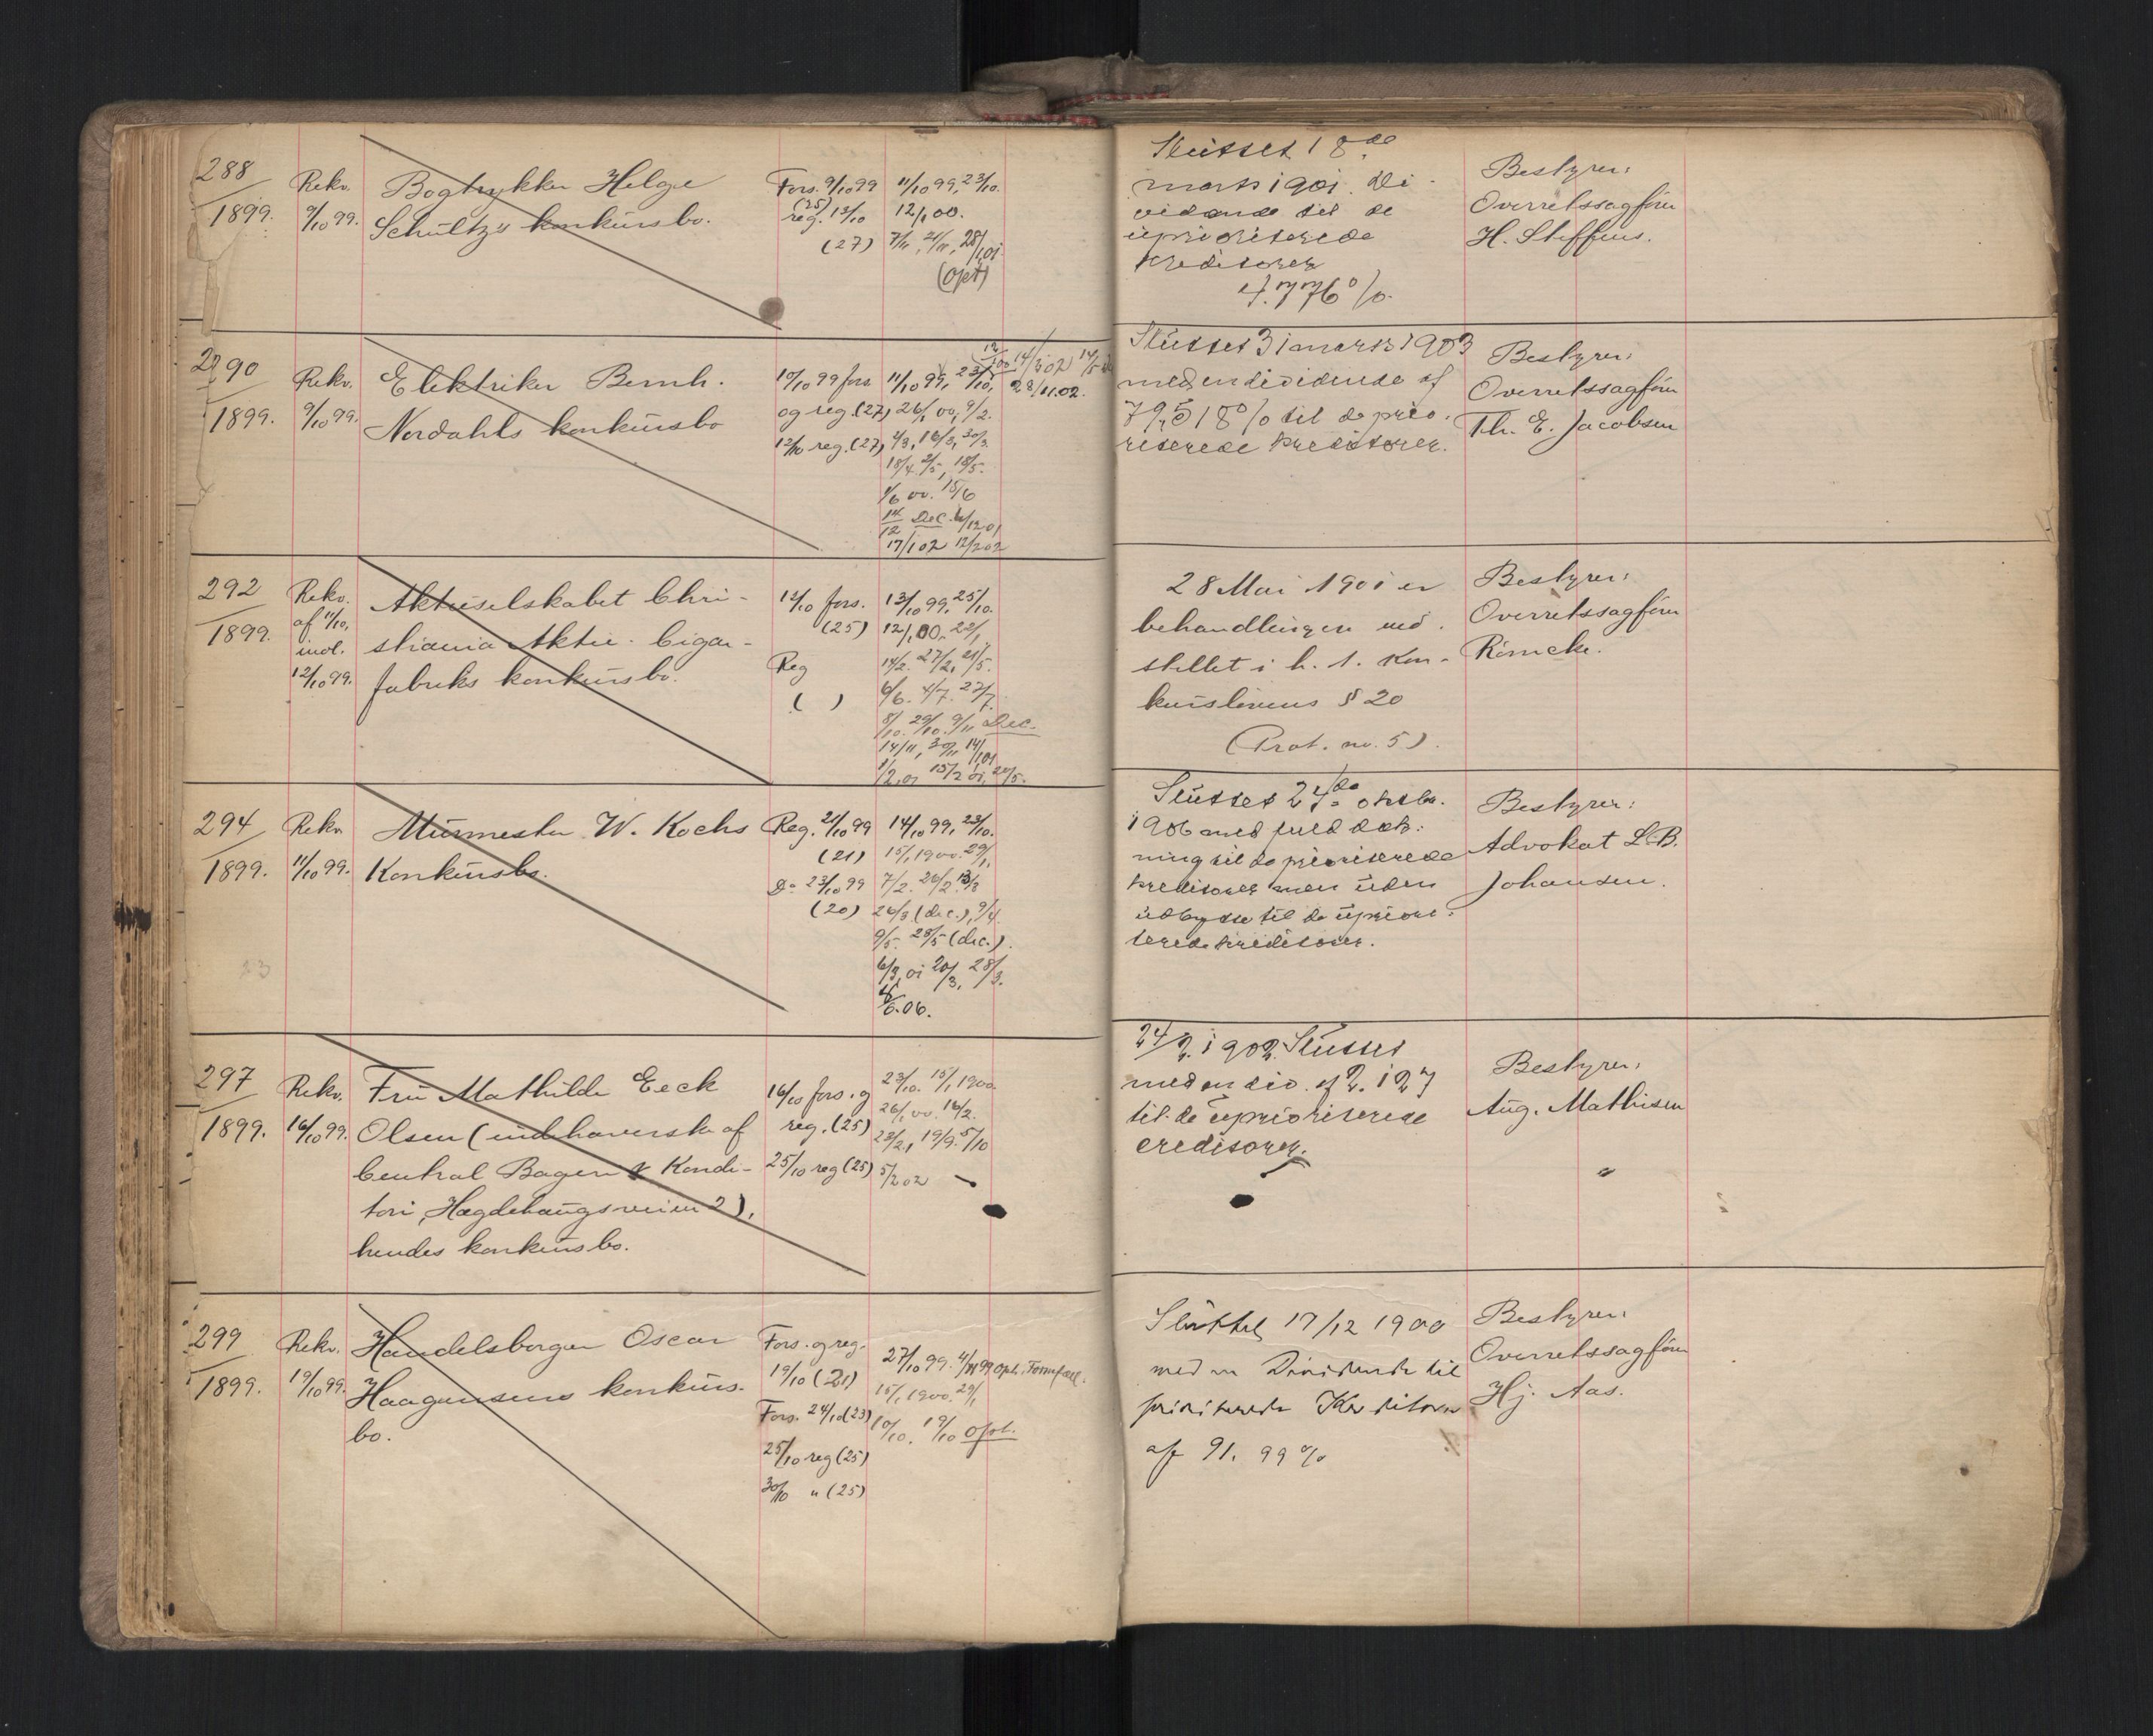 288
1899.
Rekv.
9/10 99.
Bogtrykker Helge
Schultz's konkursbo.
Fors. 9/10 99
(25)
reg. 13/10
(27)
11/10 99, 23/10.
12/1, 00.
7/11, 21/11, 28/1, 01
(opt)
Sluttet 18de
marts 1901. Di-
vidende til de
uprioriterede
kreditorer
4.776 %.
Bestyrer:
Overretssagfører
H. Steffens.
290
1899.
Rekv.
9/10 99.
Elektriker Bernh.
Nordahls konkursbo
10/10 99 fors
og reg. (27)
12/10 reg. (27)
11/10 99, 23/10,
26/1, 00, 9/2.
2/3, 16/3, 30/3.
18/4. 2/5, 18/5.
1/6 00. 15/6
14/12 Dec.
17/1 02 12/2 02
14/3 02
28/11.02.
Sluttet 31 marts 1903
med en dividende af
79,518% til de prio-
riterede kreditorer.
Bestyrer:
Overretssagfører
Th. E. Jacobsen
292
1899.
Rekv.
af 11/10,
indl.
12/10 99.
Aktieselskabet Chri-
stiania Aktie-Cigar-
fabriks konkursbo.
12/10 fors.
(25)
Reg
( )
13/10 99, 25/10.
12/1, 00, 22/1,
14/2. 27/2, 21/5.
6/6. 4/7. 27/7.
8/10. 29/10. 9/11 Dec.
14/11, 30/11 14/1, 01
1/2, 01 15/2 01, 20/5.
28 Mai 1901 er
behandlingen ind-
stillet i h. t. kon-
kurslovens § 20
(Prot. no. 5).
Bestyrer:
Overretssagfører
Römcke.
294
1899.
Rekv.
11/10 99.
Murmester W. Kochs
Konkursbo.
Reg. 21/10 99
(21)
Do 23/10 99
(20)
14/10 99, 23/10.
15/1, 1900. 29/1,
7/2. 26/2. 13/3
26/3 (dec.), 9/4
9/5. 28/5 (dec.).
6/3, 01 20/3, 28/3.
6.06.
Sluttet 24de oktbr.
1906 med fuld dæk-
ning til de prioriterede
kreditorer men uden
udbytte til de upriori-
terede kreditorer.
Bestyrer:
Advokat L. B.
Johansen.
297
1899.
Rekv.
16/10 99.
Fru Mathilde Eeck
Olsen (indehaverske af
Central Bageri & Kondi-
tori, Hægdehaugsveien 2),
hendes konkursbo.
16/10 fors. og
reg. (25)
25/10 reg (25)
23/10. 15/1 1900.
26/1, 00. 16/2.
23/2, 19/9. 5/10
5/2 02
24/2. 1902. Sluttet
med en div. af 2.127
til de uprioriterede
creditorer.
Bestyrer:
Aug. Mathisen
299
1899.
Rekv.
19/10 99.
Handelsborger Oscar
Haagensens konkurs-
bo.
Fors. og reg.
19/10 (21)
Fors. 24/10 (23)
25/10 reg (25)
30/10 " (25)
27/10 99. 4/11 99 Opt. Formfæl.
15/1, 1900. 29/1
10/10. 19/10 Opt.
Sluttet 17/12 1900
med en Dividende til
prioriterede Kreditorer
af 91. 99 %
Bestyrer:
Overretssagfører
Hj. Aas.